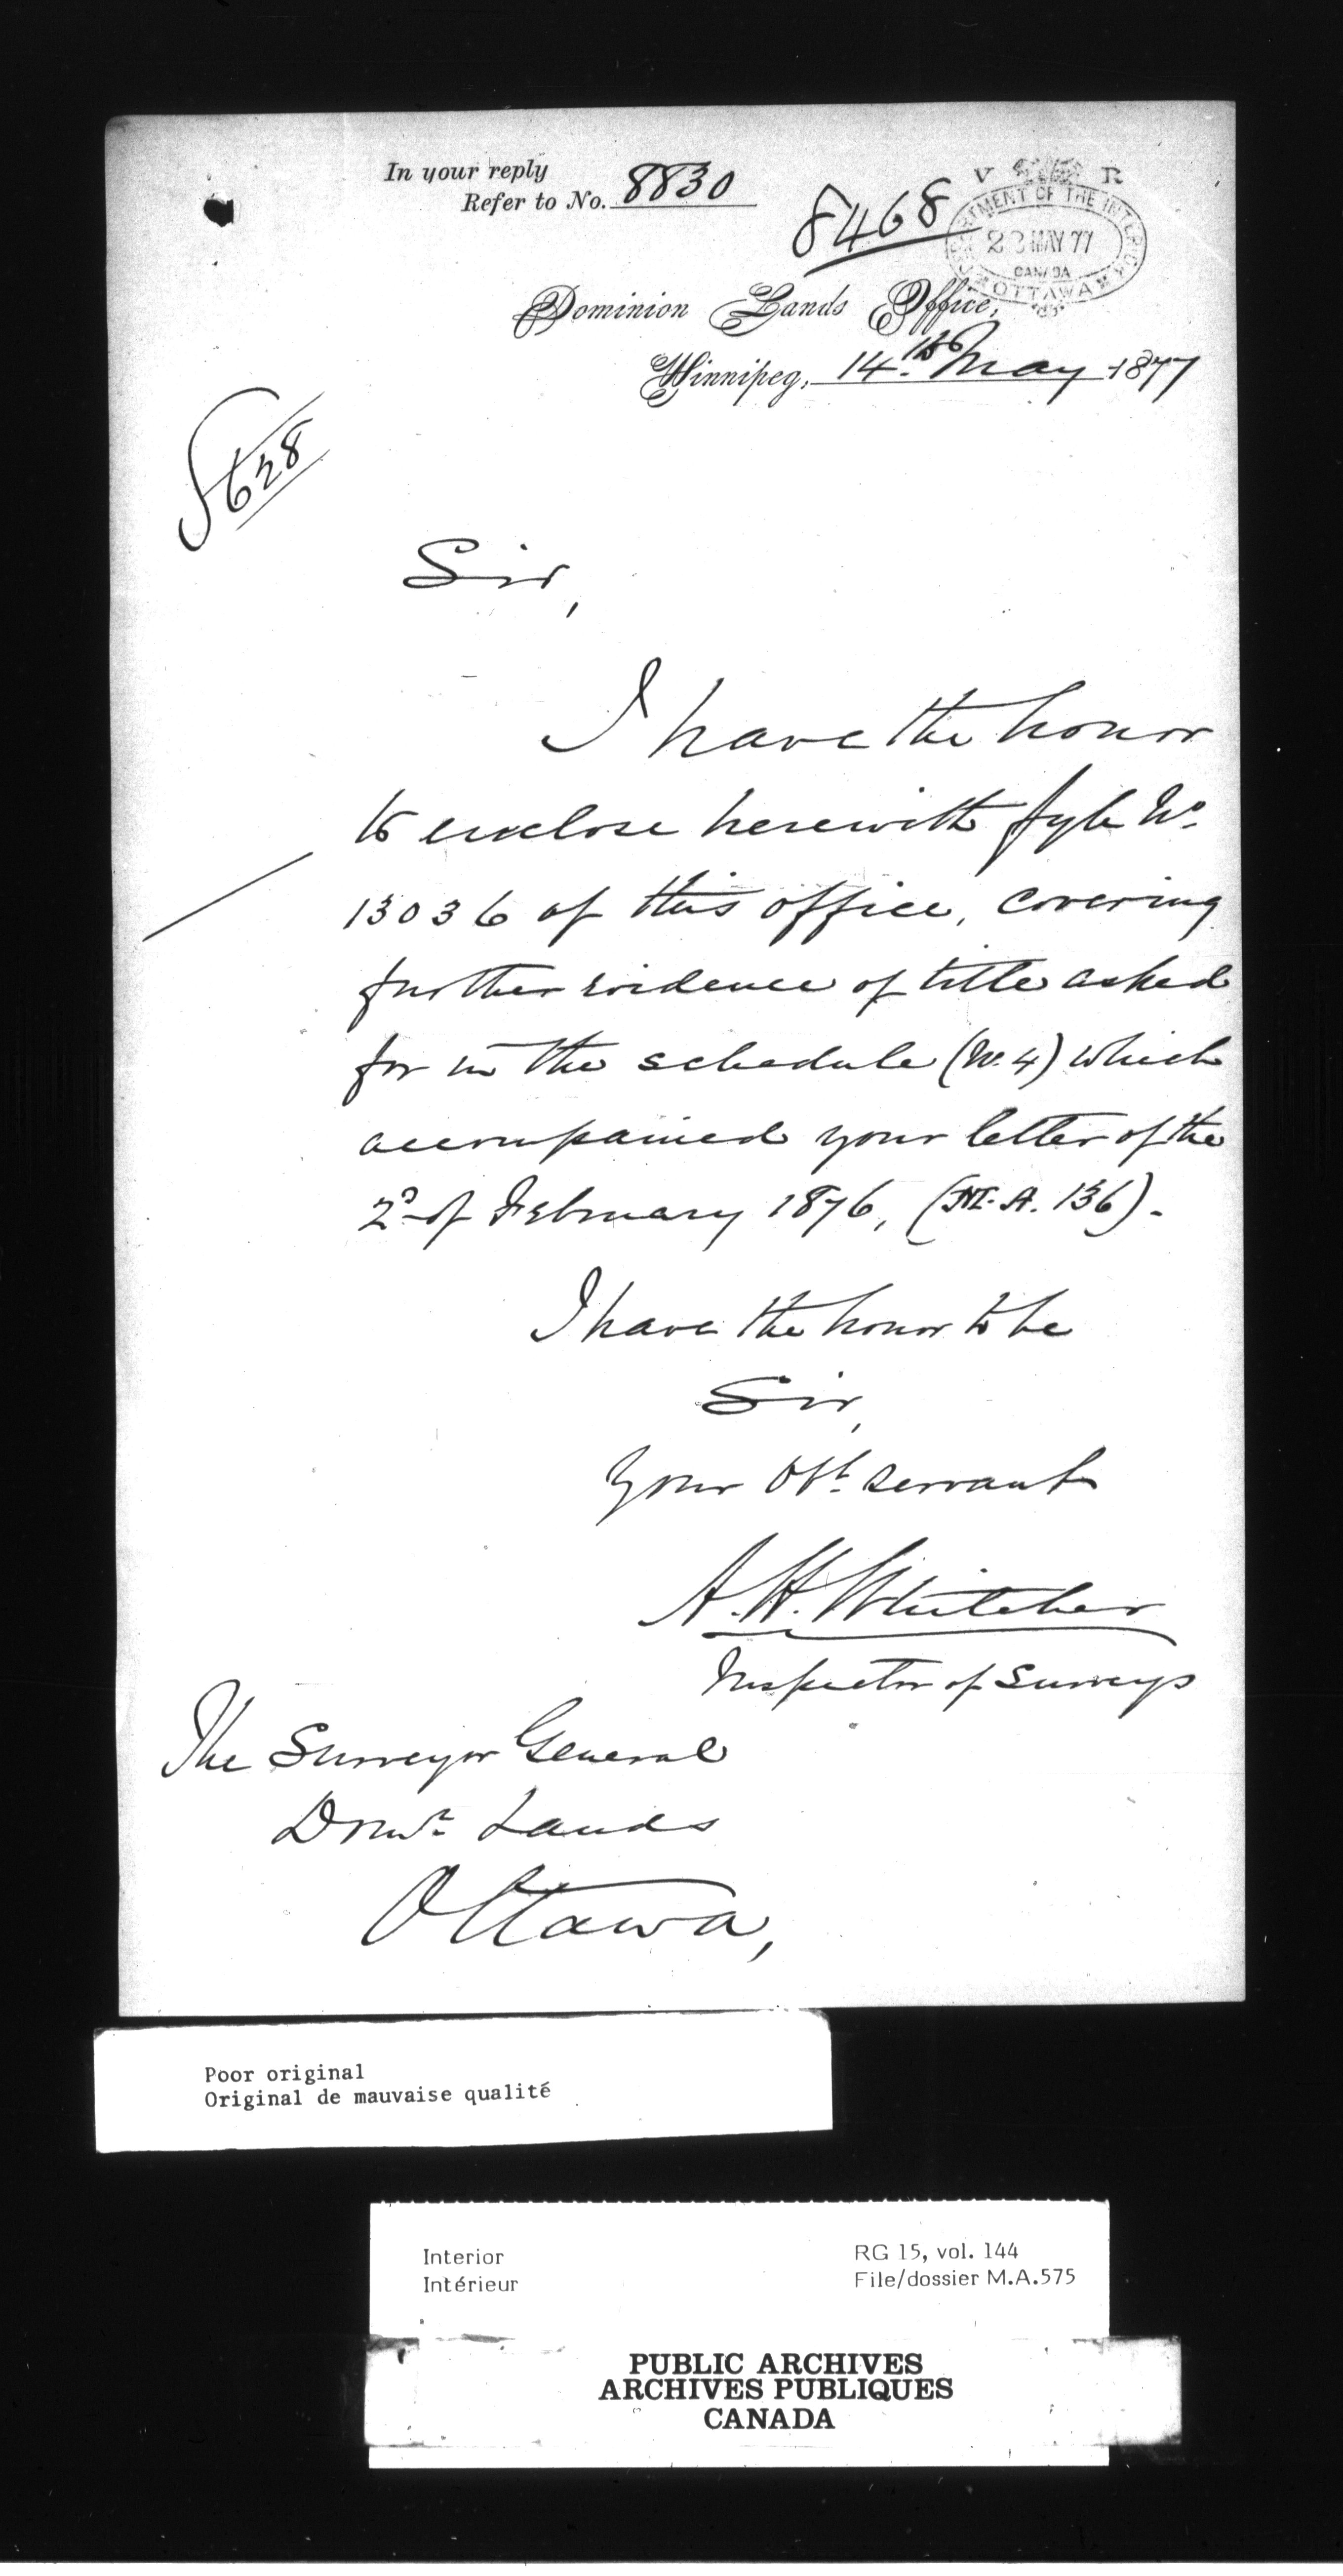 In your reply
Refer to No. 8830
8468
V R
DEPARTMENT OF THE INTERIOR
23 MAY 77
CANADA
OTTAWA
Dominion Lands Office,
Winnipeg, 14th May 1877
628
Sir,
I have the honor
to enclose herewith fyle No.
13036 of this office, covering
further evidence of title asked
for in the schedule (No. 4) which
accompained your letter of the
2d of February 1876, (M.A. 136).
I have the honor to be
Sir,
Your Obt. servant
A.H. Whitcher
Inspector of Surveys
The Surveyor General
Domn. Lands
Ottawa,
Poor original
Original de mauvaise qualité
Interior
Intérieur
RG 15, vol. 144
File/dossier M.A.575
PUBLIC ARCHIVES
ARCHIVES PUBLIQUES
CANADA